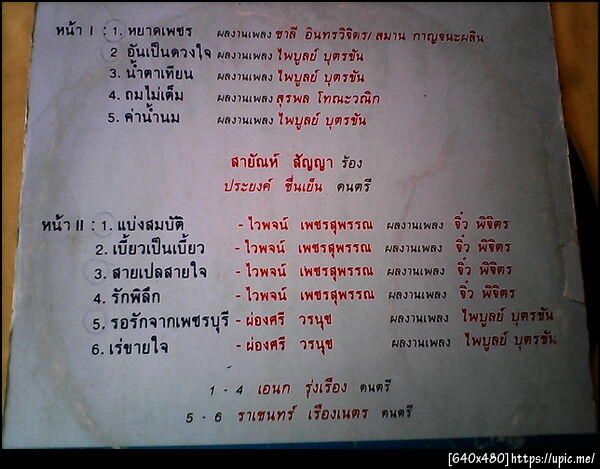 หน้า I : 1. หยาดเพชร ผลงานเพลง ชาลี อินทรวิจิตร/ สมาน กาญจนะผลิน
2 อันเป็นดวงใจ ผลงานเพลง ไพบูลย์ บุตรขัน
3. น้ำตาเทียน ผลงานเพลง ไพบูลย์ บุตรขัน
4. ถมไม่เต็ม ผลงานเพลง สุรพล โทณะวณิก
5. ค่าน้ำนม ผลงานเพลง ไพบูลย์ บุตรขัน
สายัณห์ สัญญา ร้อง
ประยงค์ ชื่นเย็น ดนตรี
หน้า II : 1. แบ่งสมบัติ - ไวพจน์ เพชรสุพรรณ ผลงานเพลง จิ๋ว พิจิตร
2. เบี้ยวเป็นเบี้ยว - ไวพจน์ เพชรสุพรรณ ผลงานเพลง จิ๋ว พิจิตร
3. สายเปลสายใจ - ไวพจน์ เพชรสุพรรณ ผลงานเพลง จิ๋ว พิจิตร
4. รักพิลึก - ไวพจน์ เพชรสุพรรณ ผลงานเพลง จิ๋ว พิจิตร
5. รอรักจากเพชรบุรี - ผ่องศรี วรนุช ผลงานเพลง ไพบูลย์ บุตรขัน
6. เร่ขายใจ - ผ่องศรี วรนุช ผลงานเพลง ไพบูลย์ บุตรขัน
1 - 4 เอนก รุ่งเรือง ดนตรี
5 - 6 ราเชนทร์ เรืองเนตร ดนตรี
[640x480]https://upic.me/